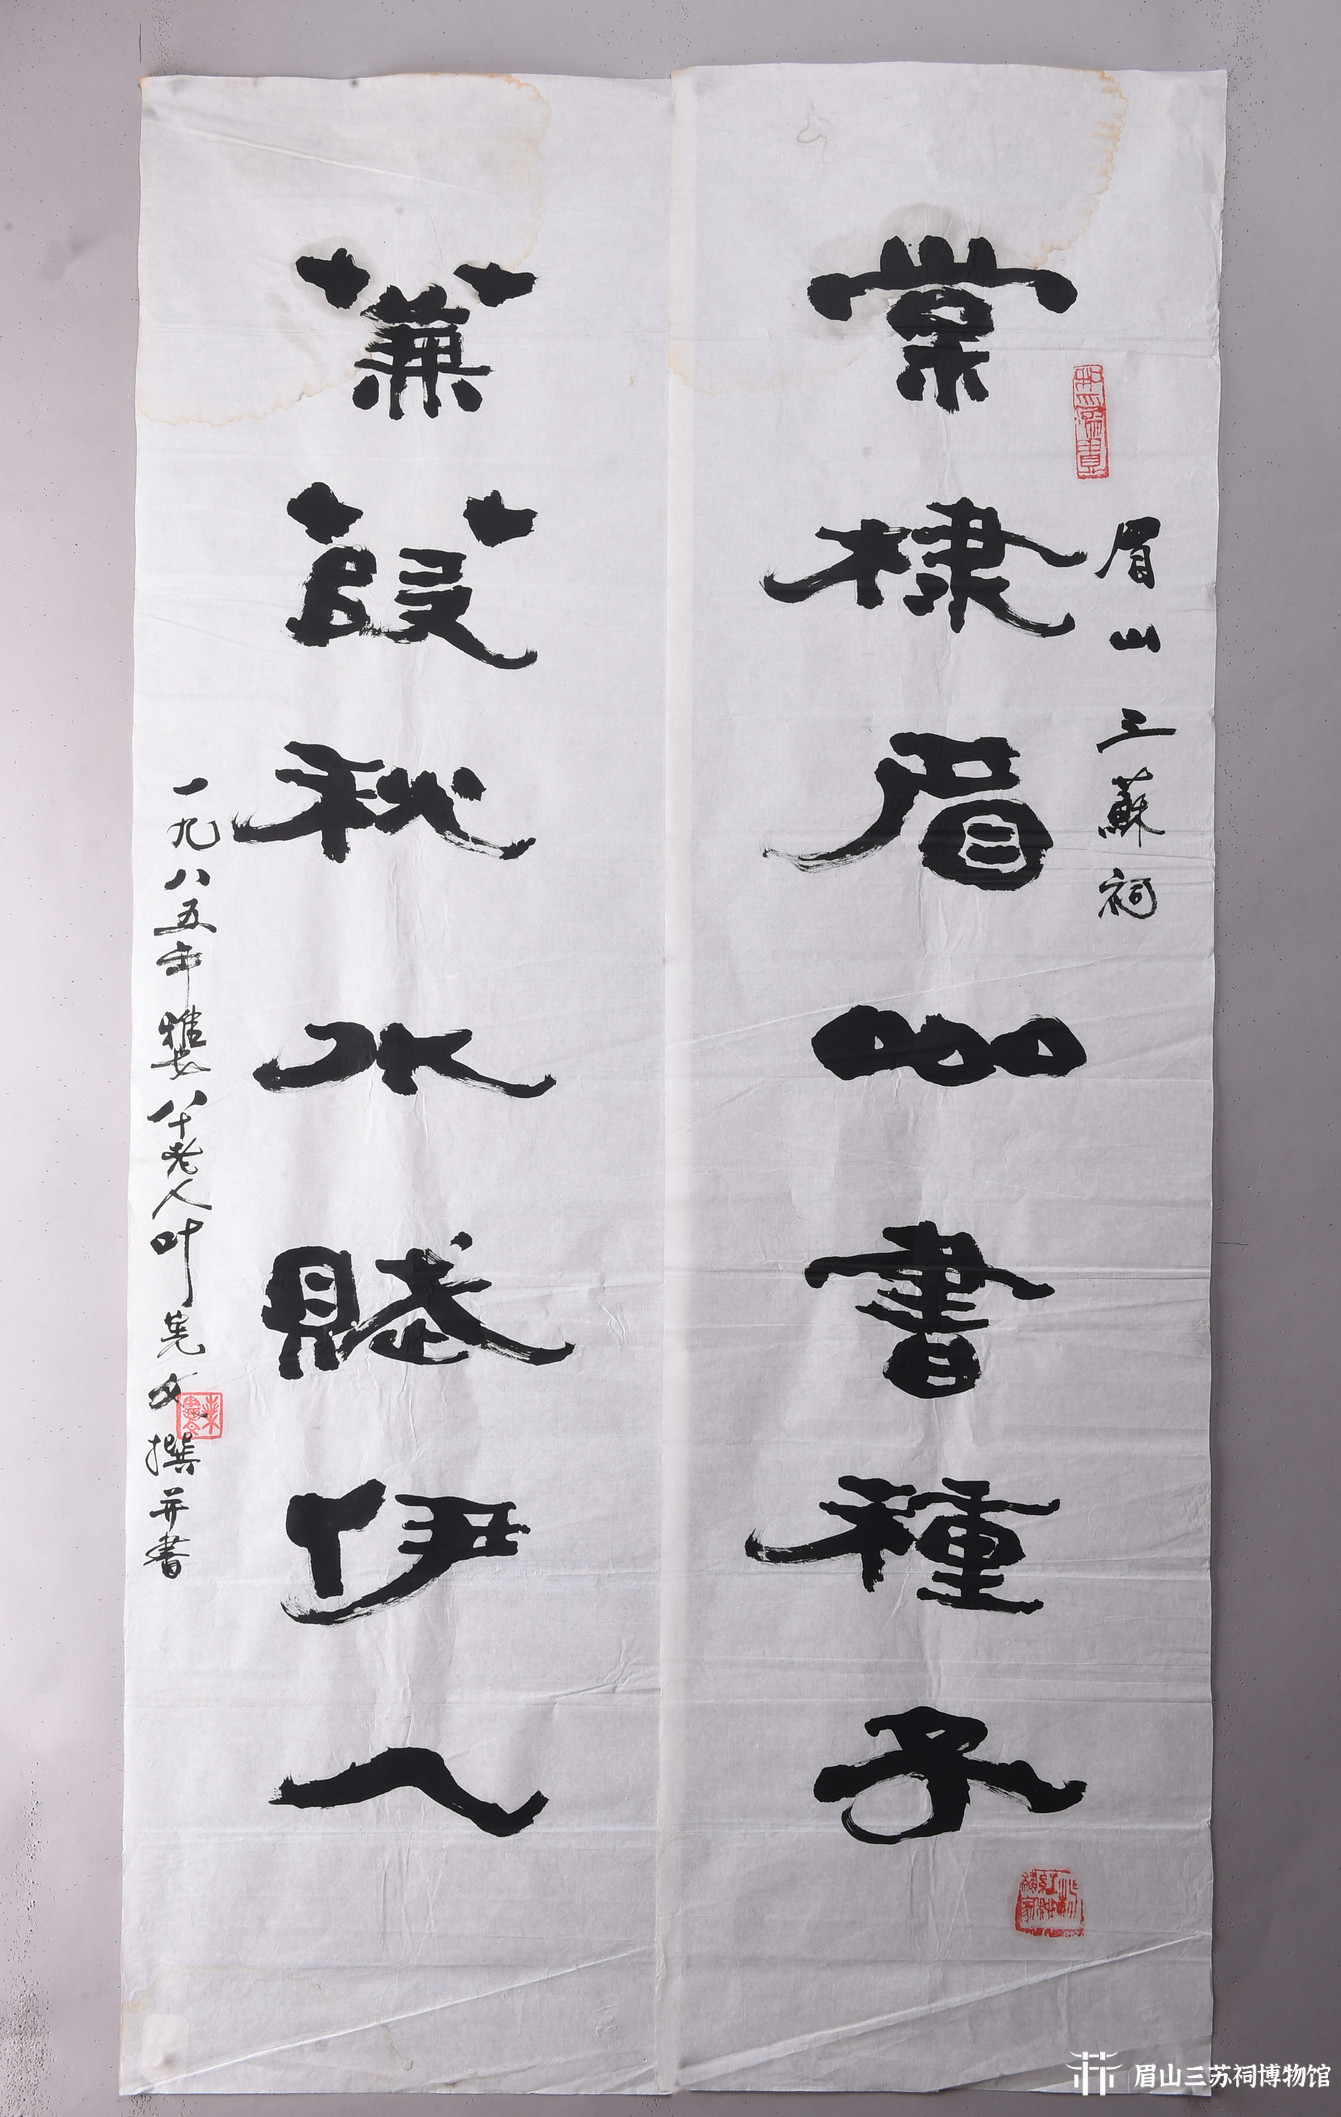 眉山三蘇祠
棠棣眉山書種子
蒹葭秋水賦伊人
一九八五年雅安八十老人叶
撰并書
眉山三苏祠博物馆